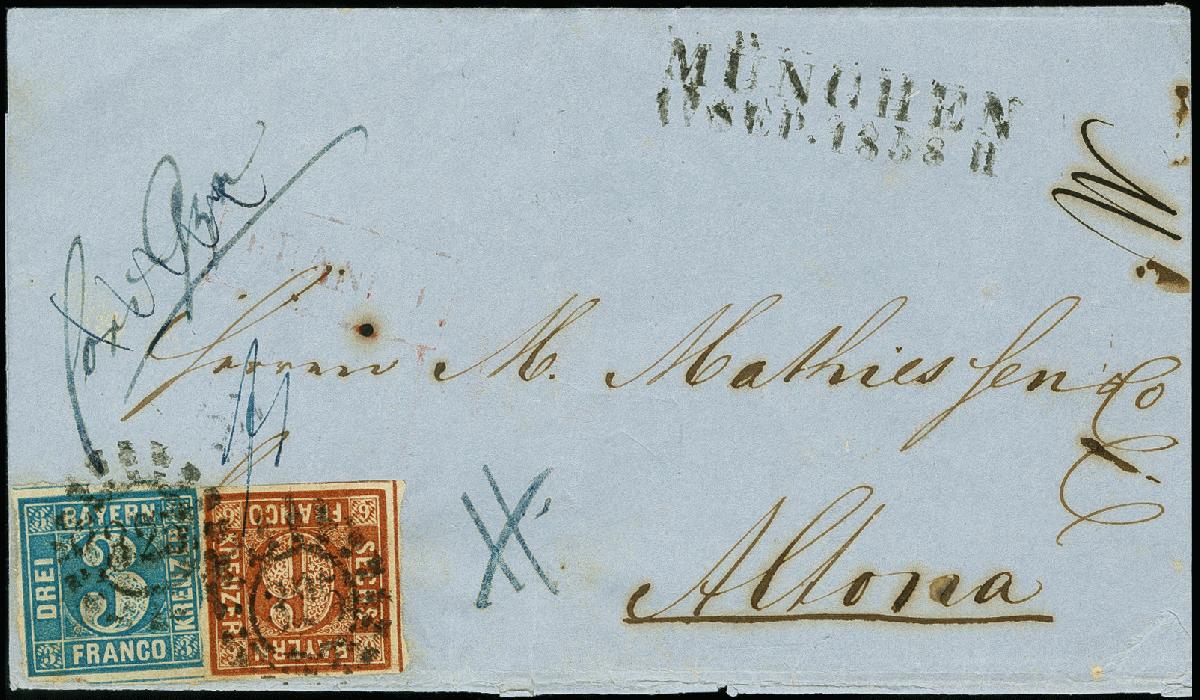 MÜNCHEN
17 SEP. 1858 II
Herrn M. Mathiessen Co
Altona
BAYERN
DREI
KREUZER
FRANCO
3
FRANCO
SECHS
KREUZER
BAYERN
6